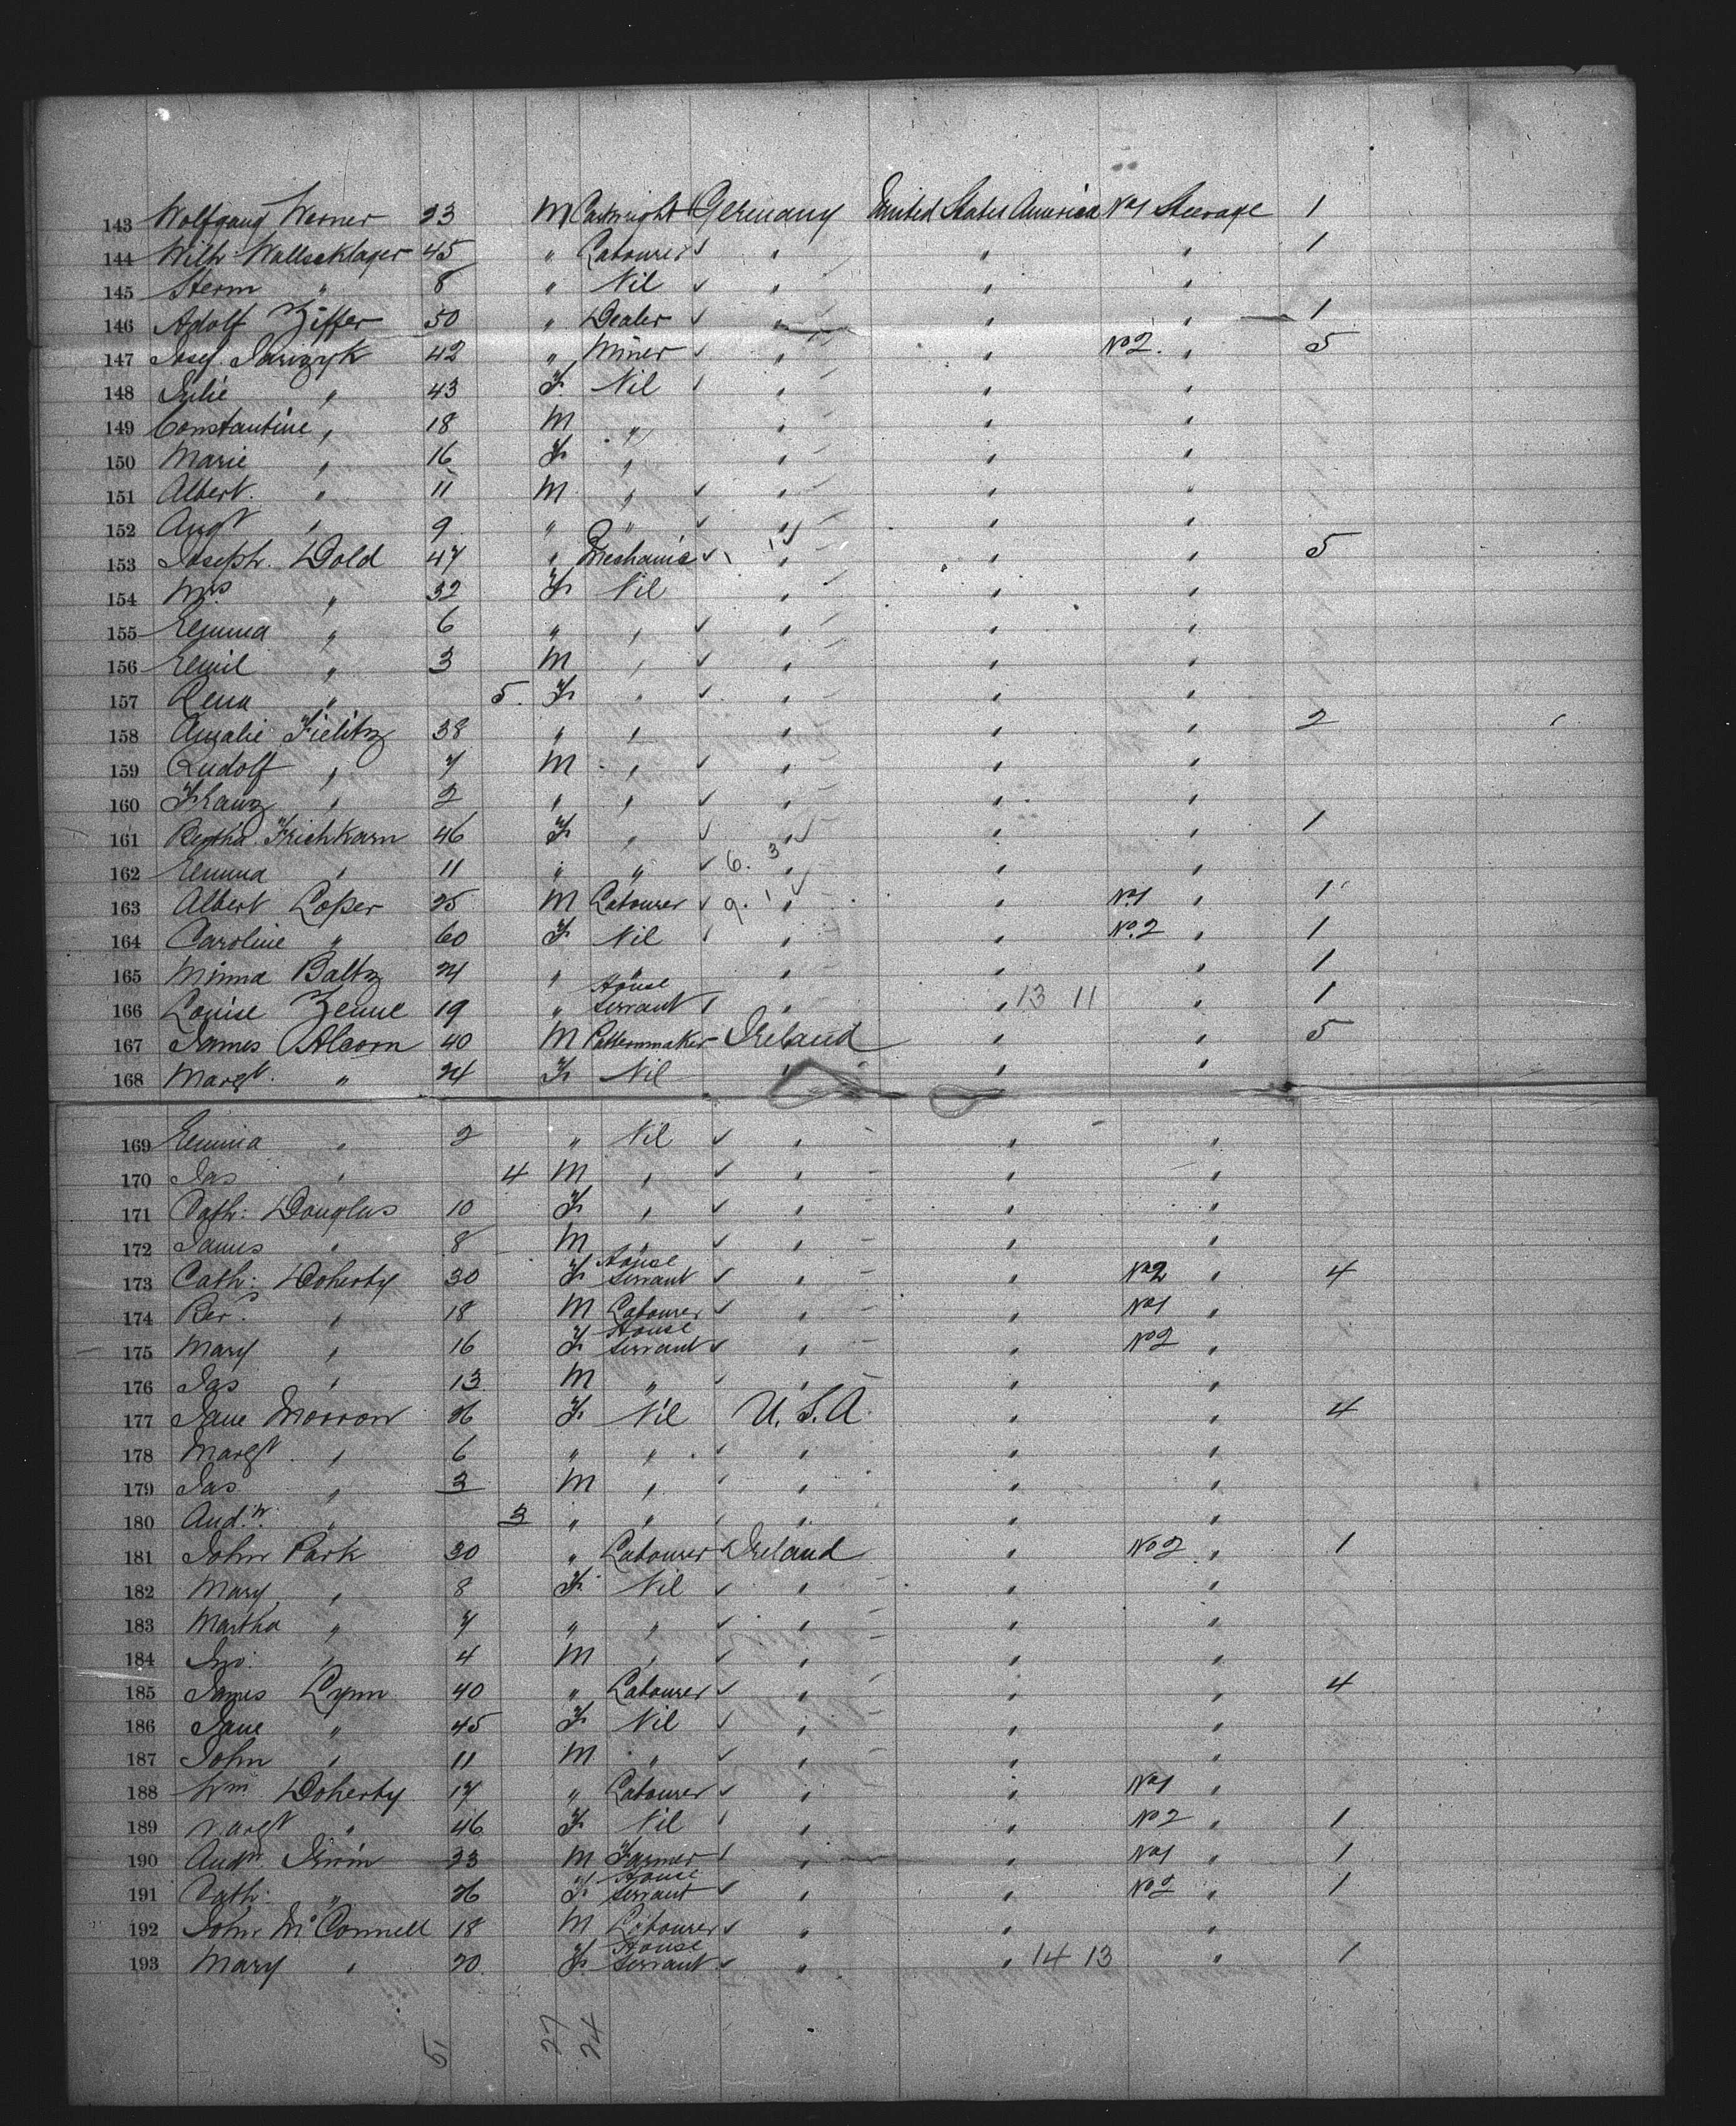 143 Wolfgang Werner 23 M Cartwright Germany United States America No1 Steerage 1
144 Wilh: Wallseklager 45 " Labourer " " " 1
145 Herm " 8 " Nil " " "
146 Adolf Ziffer 50 " Dealer " " " 1
147 Josef 42 " Miner " " No2. " 5
148 Julie " 43 F. Nil " " "
149 Constantine " 18 M " " " "
150 Marie " 16 F. " " " "
151 Albert. " 11 M " " " "
152 Augt " 9 " " " " "
153 Joseph. Dold 47 " Mechanic " " " 5
154 Mrs " 32 F. Nil " " "
155 Emma " 6 " " " " "
156 Emil " 3 M " " " "
157 Lena " 5. F. " " " "
158 Amalie Fielitz 38 " " " " " 2
159 Rudolf " 7 M " " " "
160 Franz " 2 " " " " "
161 Bertha Frichkarn 46 F. " " " " 1
162 Emma " 11 " " 6. 3 " " "
163 Albert Loper 25 M Labourer 9. 1 " " No1 " 1
164 Caroline " 60 F. Nil " " No.2 " 1
165 Minna Baltz 24 " " " " " 1
166 Louise Zenne 19 " House Servant " " 13 11 " 1
167 James Alcorn 40 M Patternmaker Ireland " " 5
168 Margt. " 24 F. Nil " " "
169 Emma " 2 " Nil " " "
170 Jas " 4 M " " " "
171 Cath: Douglas 10 F. " " " "
172 James " 8 M " " " "
173 Cath: Doherty 30 F. House Servant " " No2 " 4
174 " 18 M Labourer " " No1 "
175 Mary " 16 F. House Servant " " No2 "
176 Jas " 13 M " " " "
177 Jane Morron 26 F. Nil U.S.A. " " 4
178 Margt " 6 " " " " "
179 Jas " 3 M " " " "
180 Andw. " 3 " " " " "
181 John Park 30 " Labourer Ireland " No2 " 1
182 Mary " 8 F. Nil " " "
183 Martha " 7 " " " " "
184 Jno. " 4 M " " " "
185 James Lynn 40 " Labourer " " " 4
186 Jane " 45 F. Nil " " "
187 John " 11 M " " " "
188 Wm Doherty 17 " Labourer " " No1 "
189 Margt " 46 F. Nil " " No2 " 1
190 Andw. Irwin 23 M Farmer " " No1 " 1
191 Cath: " 26 F. House Servant " " No2 " 1
192 John McConnell 18 M Labourer " " "
193 Mary " 20 F. House Servant " " 14 13 " 1
51 27 24